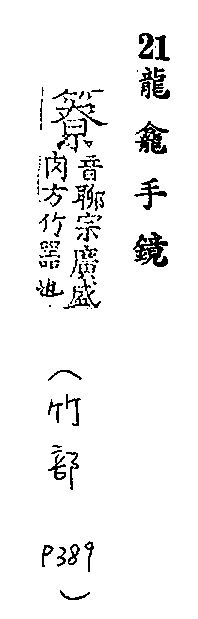 21龍龕手鏡
簝
音聊宗廣盛
肉方竹器也
(竹部 P389)